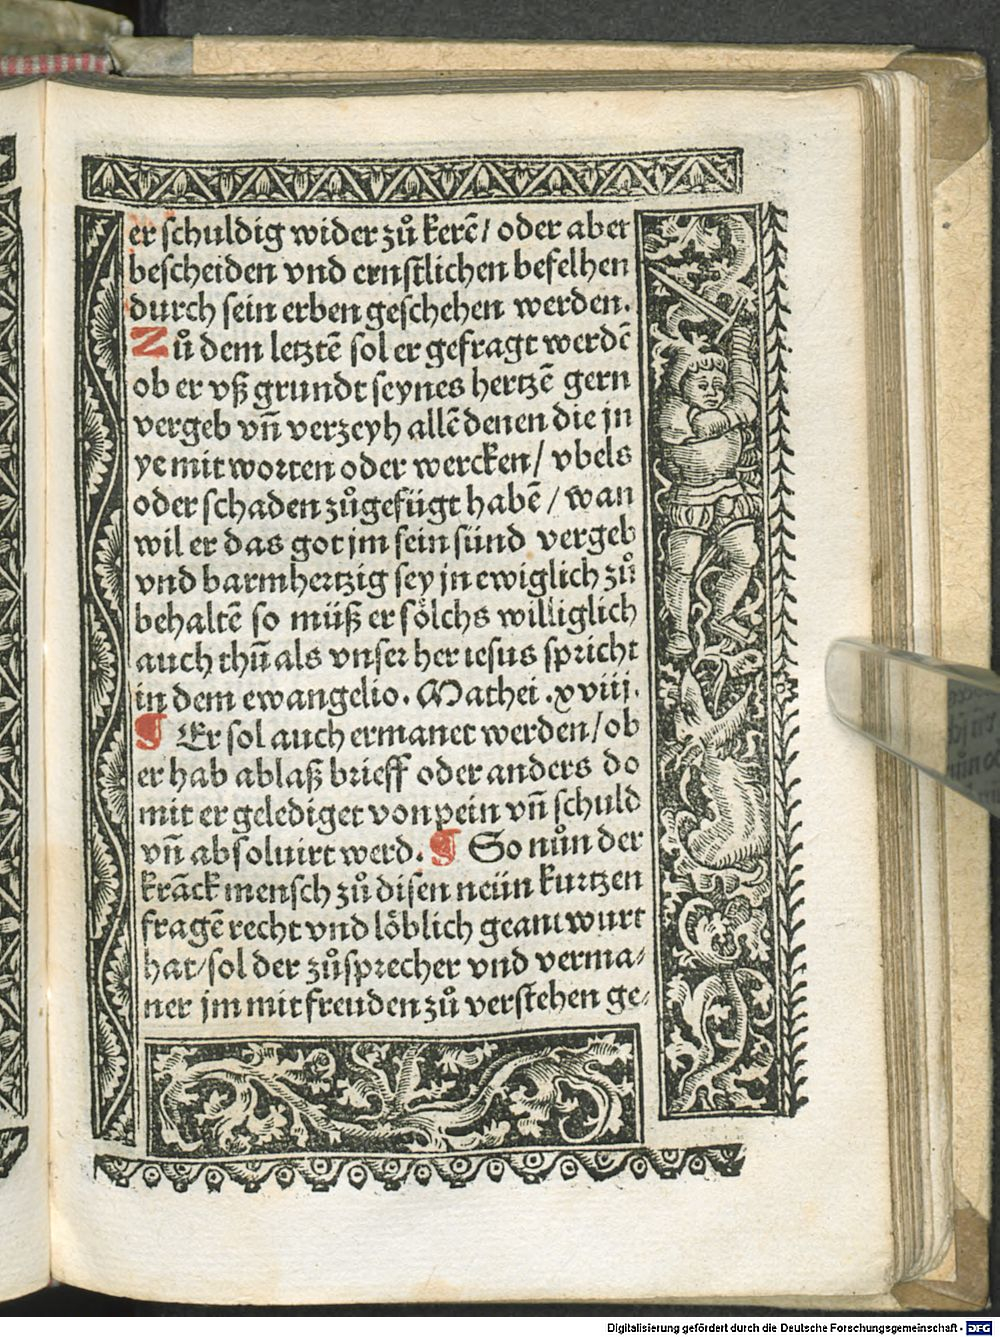 er schuldig wider zuͦ kerē/ oder aber
bescheiden vnd ernstlichen befelhen
durch sein erben geschehen werden.
Zuͦ dem letztē sol er gefragt werdē
ob er vß grundt seynes hertzē gern
vergeb vn̄ verzeyh allē denen die jn
ye mit worten oder wercken/ vbels
oder schaden zuͦgefügt habē/ wan
wil er das got jm sein sünd vergeb
vnd barmhertzig sey jn ewiglich zuͦ
behaltē so müß er soͤlchs williglich
auch thuͦ als vnser her iesus spricht
in dem ewangelio. Mathei .xviij.
¶ Er sol auch ermanet werden/ ob
er hab ablaß brieff oder anders do
mit er gelediget von pein vn̄ schuld
vn̄ absoluirt werd. ¶ So nuͦn der
krāck mensch zuͦ disen neün kurtzen
fragē recht vnd loͤblich geantwurt
hat/ sol der zuͦsprecher vnd verma/
ner jm mit freuden zuͦ verstehen ge/
Digitalisierung gefördert durch die Deutsche Forschungsgemeinschaft - DFG